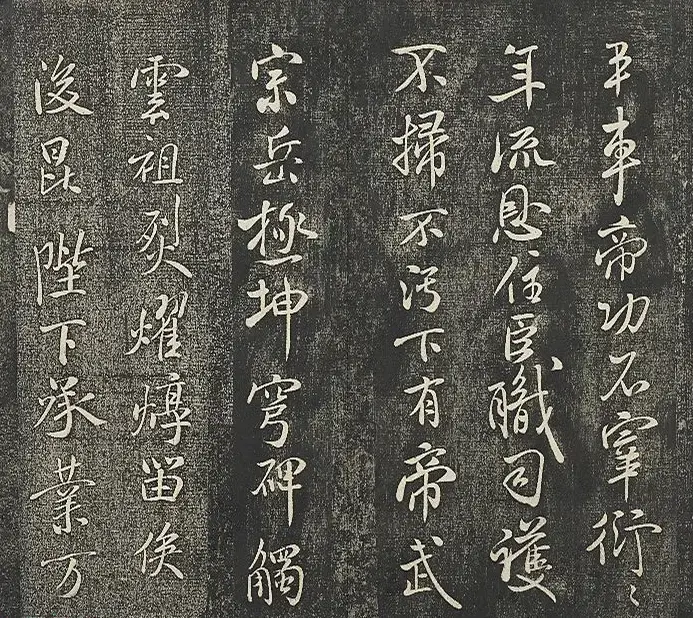 車帝功石窂衍〻
年流恩住臣職司護
不掃不污下有帝武
宗岳極坤穹碑觸
雲祖烈耀焞留俟
後昆陛下承葉万